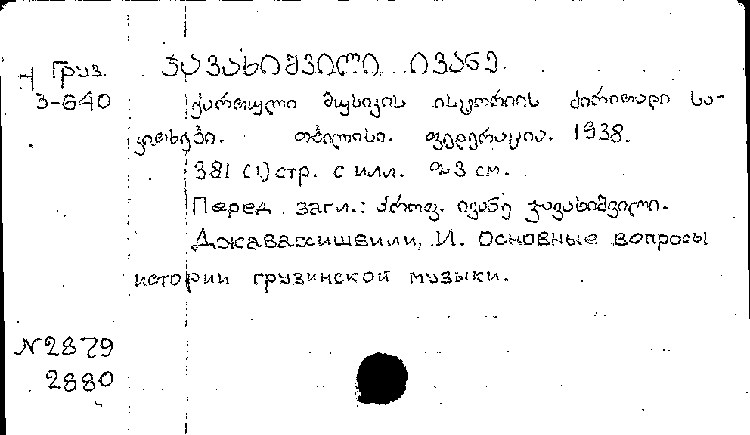 Н Груз. ჯავახიშვილი ივანე.
3-640 ქართული მუსიკის ისტორიის ძირითადი სა-
კითხები. თბილისი. ფედერაცია. 1938.
381 (1) стр. с илл. 23 см.
Перед загл.: პროფ. ივანე ჯავახიშვილი.
Джавахишвили, И. Основные вопросы
истории грузинской музыки.
N 2879
2880